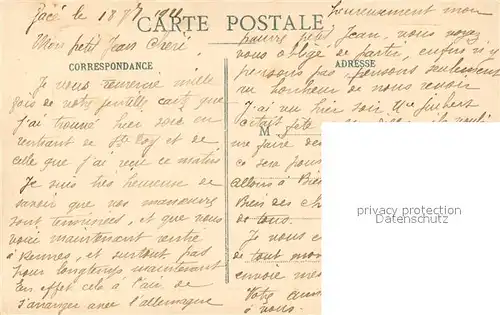 Facé le 18
CARTE POSTALE
Mon petit Jean Chéri,
CORRESPONDANCE
Je vous remercie mille
fois de votre gentille carte que
j'ai trouvé hier soir en
rentrant de Ste et de
celle que j'ai reçu ce matin
Je suis très heureuse de
savoir que vos manœuvres
sont terminées, et que vous
voici maintenant rentré
à Rennes, et surtout pas
pour longtemps maintenant
En effet cela à l'air de
s'arranger avec l'allemagne
mon
pauvre petit Jean, vous voyez
vous obligé de partir, enfin n'y
ADRESSE
pensons pas, pensons seulement
au bonheur de nous revoir
J'ai vu hier soir
M
me faire des
ce sera pour
allons à
Bien des ch
de tous.
Je vous
de tout mon
envoie mes
Votre
à vous.
privacy protection
Datenschutz